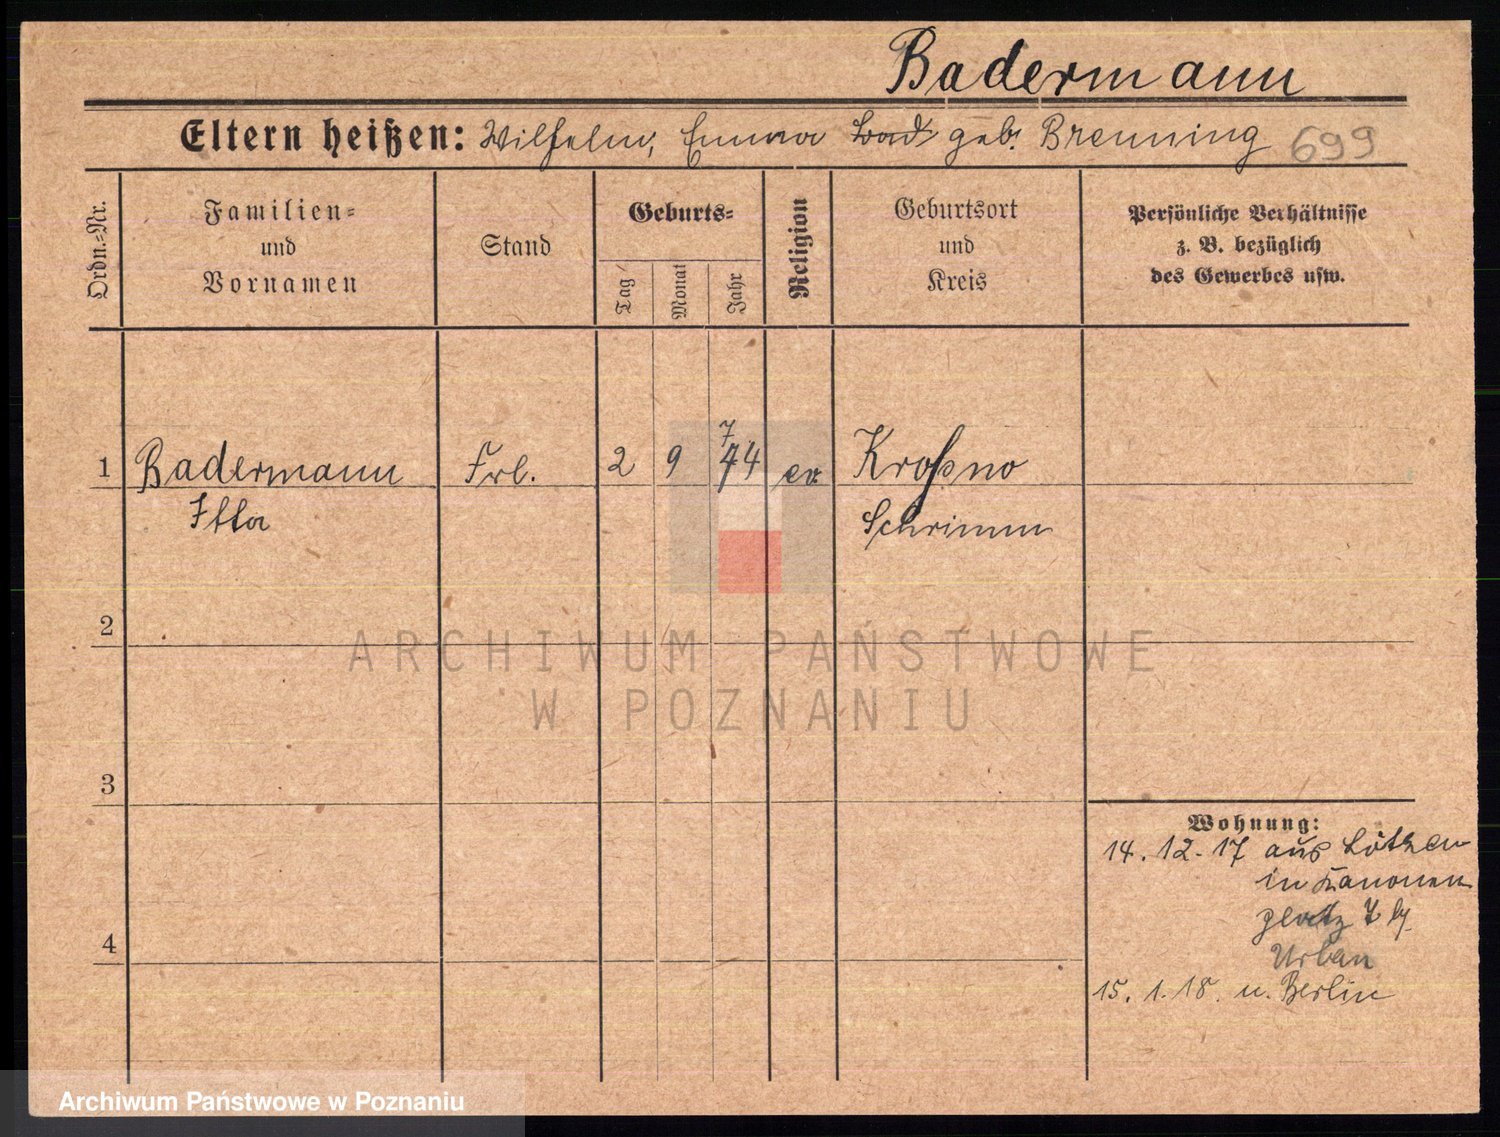 Badermann
Eltern heißen: Wilhelm, Emma geb. Brenning 699
Ordn.-Nr.
Familien-
und
Vornamen
Stand
Geburts-
Tag
Monat
Jahr
Religion
Geburtsort
und
Kreis
Persönliche Verhältnisse
z. B. bezüglich
des Gewerbes usw.
1 Badermann Frl. 2 9 74 ev Kroßno
Schrimm
2
3
4
Wohnung:
14. 12. 17 aus Lötzen
in Kanonen
platz 7 bj
Urban
15. 1. 18. n. Berlin
ARCHIWUM PAŃSTWOWE
W POZNANIU
Archiwum Państwowe w Poznaniu